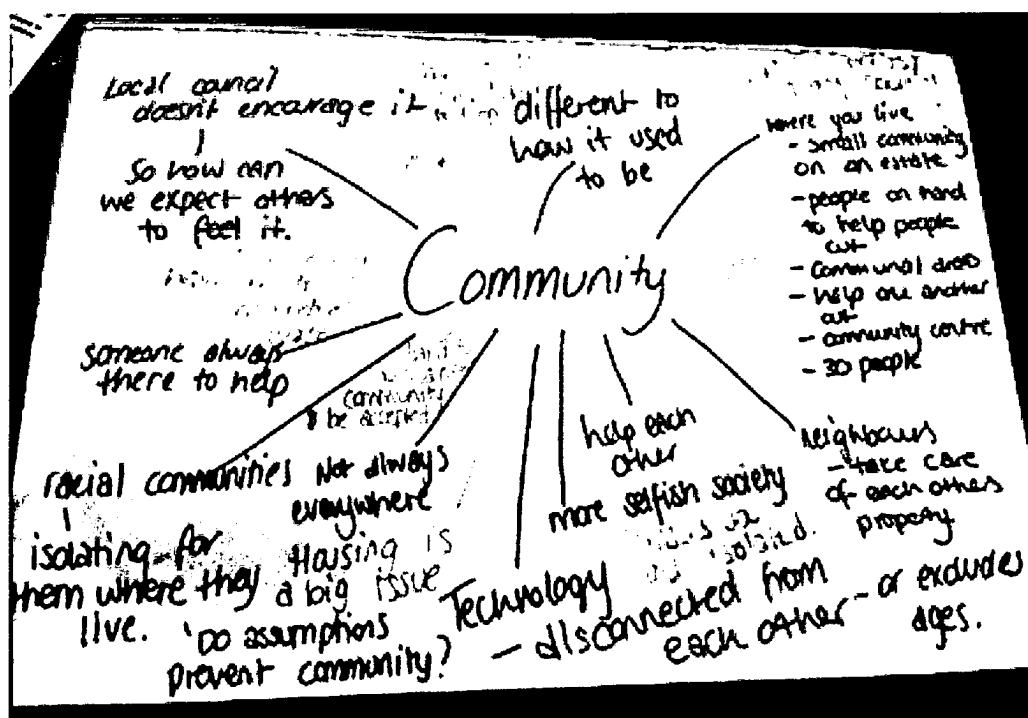 Local council
doesn't encourage it
So how can
we expect others
to feel it.
different to
how it used
to be
where you live
- small community
on an estate
- people on hand
to help people
out
- communal areas
- help one another
out
- community centre
- 30 people
Community
someone always
there to help
community
be accepted
racial communities
isolating for
them where they
live.
Not always
everywhere
Housing is
a big issue
'Do assumptions
prevent community?
Technology
- disconnected from
each other - or excludes
ages.
more selfish society
help each
other
Neighbours
- take care
of each others
property